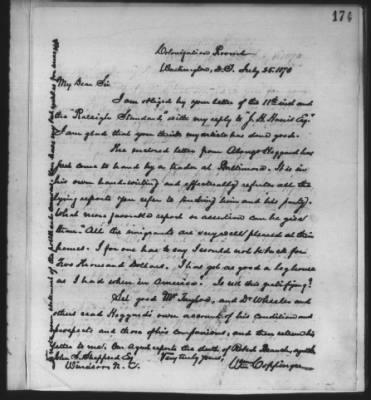 174
Colonization Rooms
Washington, D.C. July 25. 1870
My Dear Sir
I am obliged by your letter of the 11th inst and
the "Raleigh Standard" with my reply to "J. H. Harris Esq."
I am glad that you think my article has done good.
The enclosed letter from Alonzo Hoggard has
just come to hand by a trader at Baltimore. It is in
his own hand-writing and effectually refutes all the
lying reports you refer to touching him and his party.
What more favorable report or assertion can be give
than: "All the emigrants are very well pleased at their
homes. I for one has to say I would not be back for
Two thousand Dollars. I has got as good a log house
as I had when in America." Is not this gratifying?
Let good Mr. Taylor, and Dr Wheeler and
others read Hoggard's own account of his condition and
prospects and those of his companions, and then return his
letter to me. Our Agent reports the death of Robert
John A. Shepperd Esq Very truly yours,
Windsor N. C. Wm Coppinger